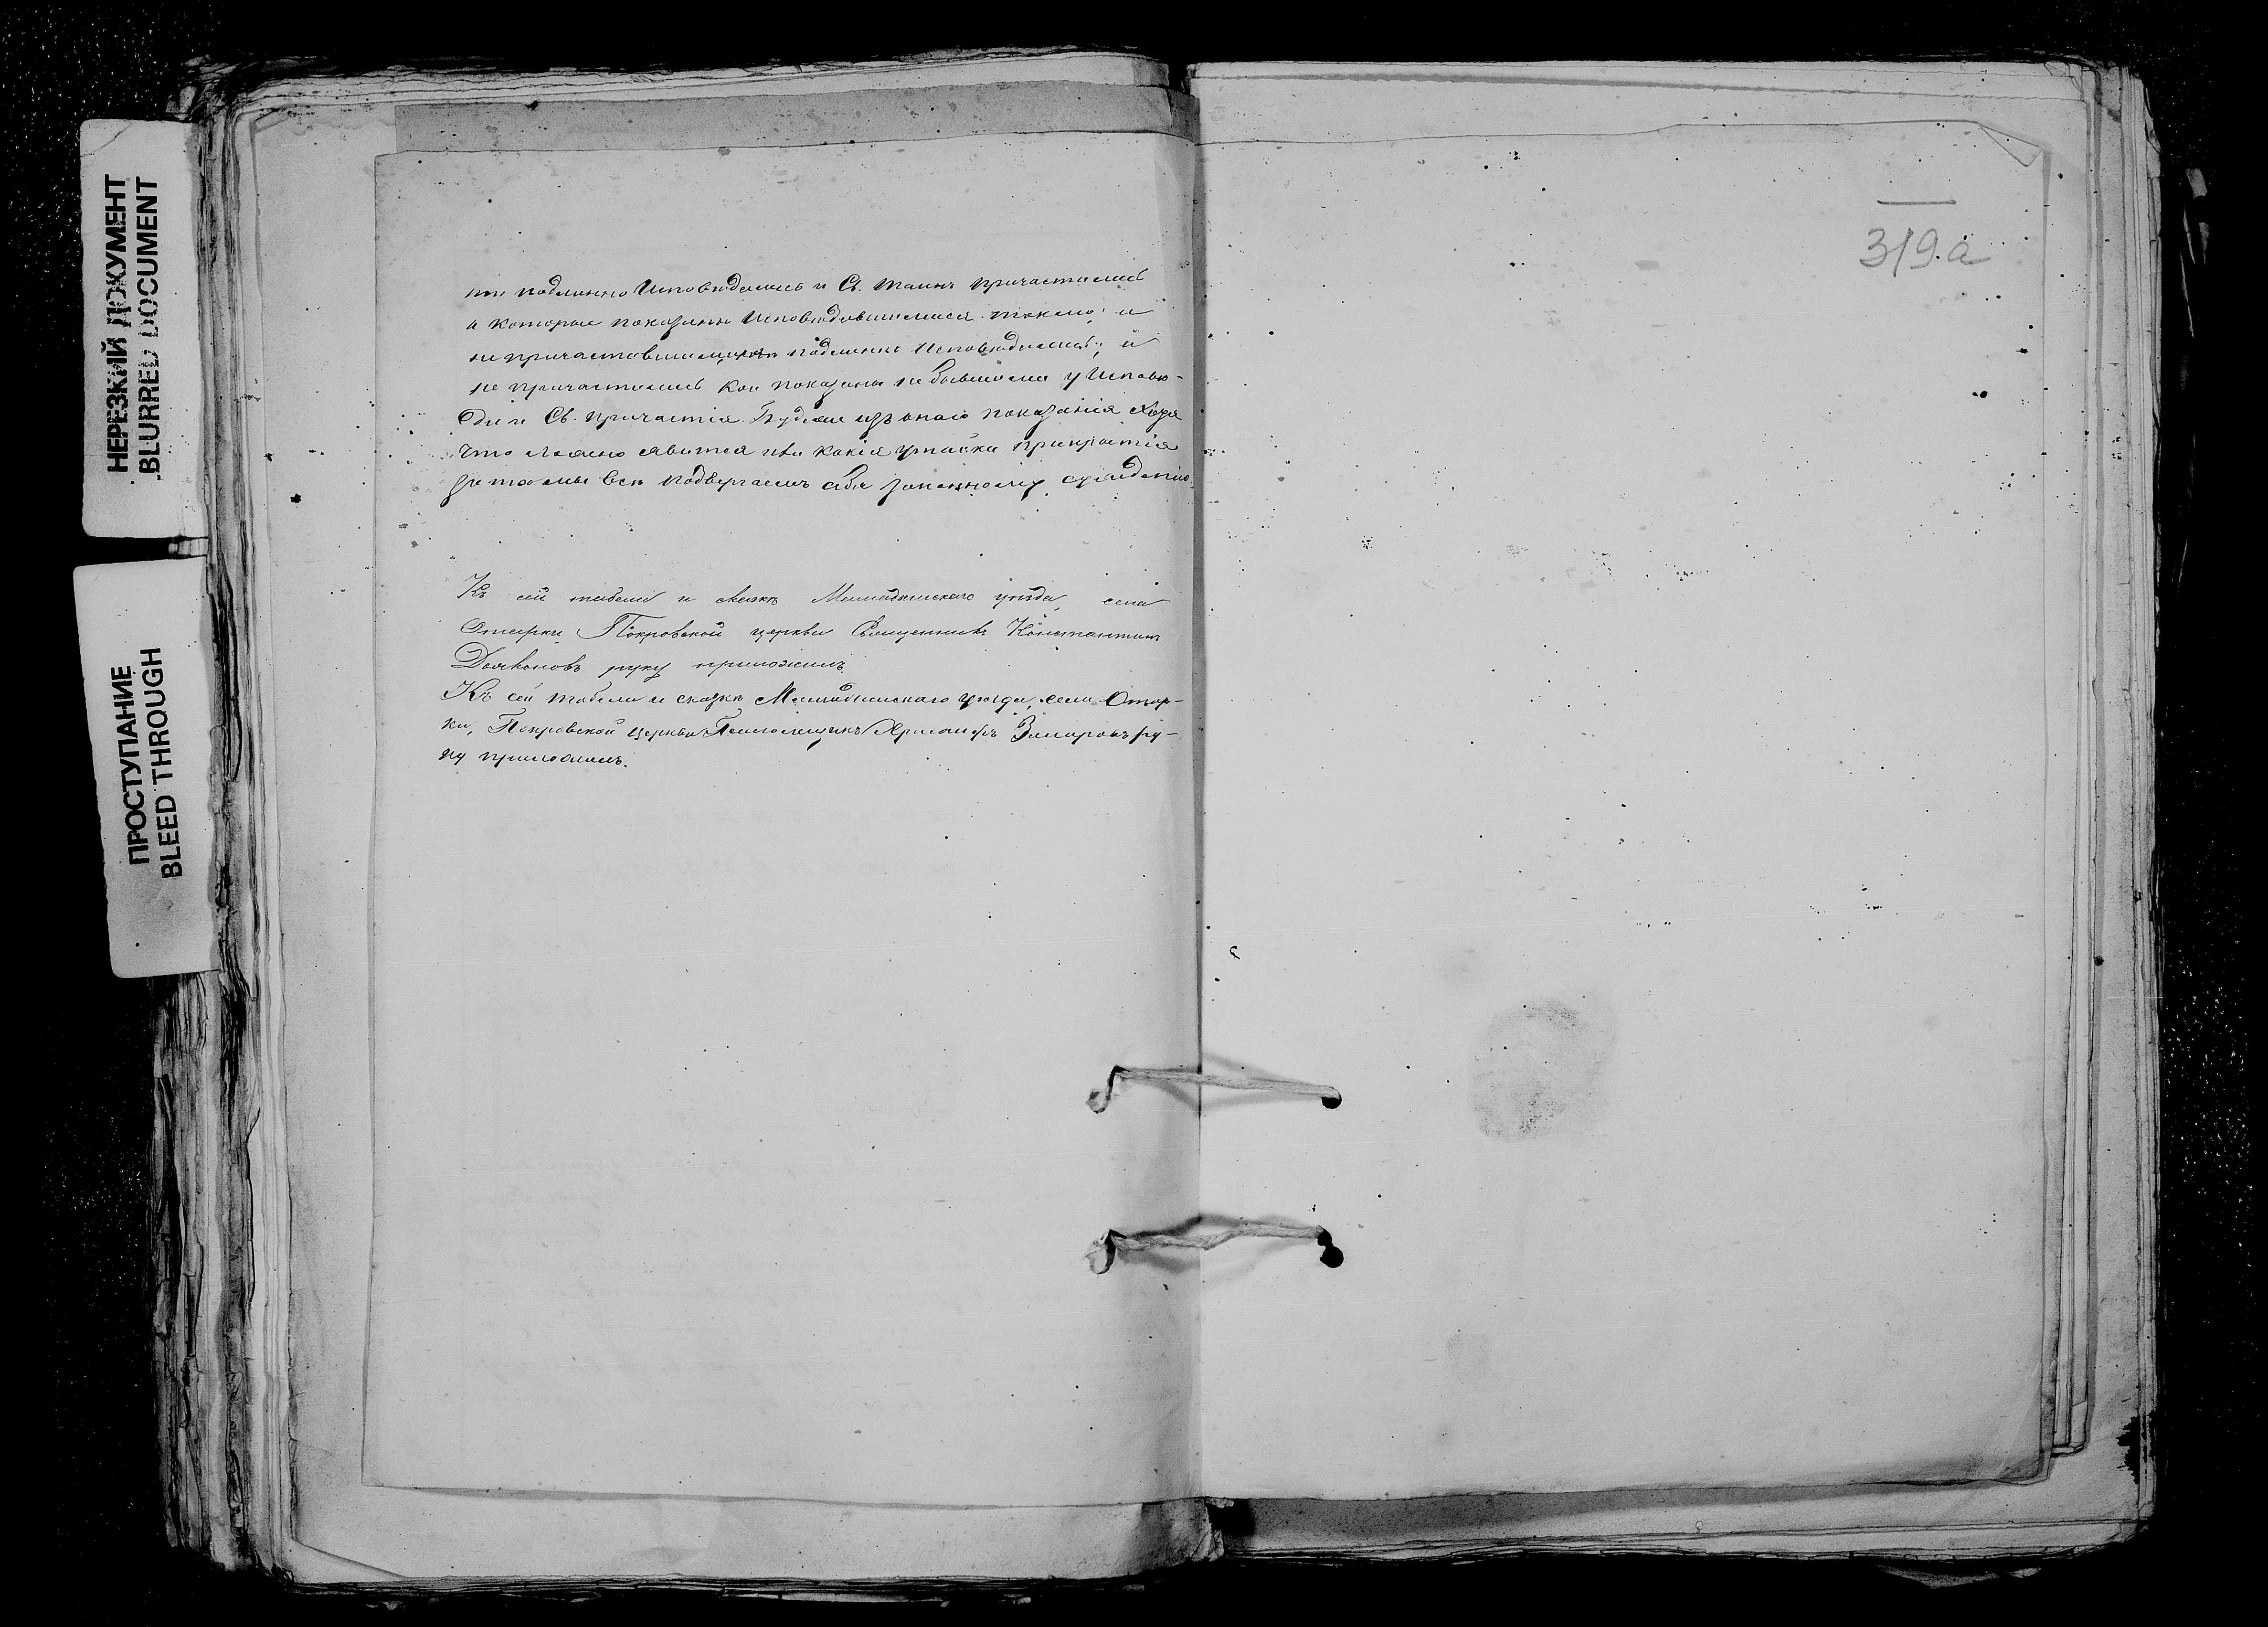 НЕРЕЗКИЙ ДОКУМЕНТ
BLURRED DOCUMENT
ПРОСТУПАНИЕ
BLEED THROUGH
319.а
подлинно Исповѣдались и Св. Таинъ причастились
а которые показаны Исповѣдавшимися токмо; и
не причастившимися подлинно Исповѣдались; и
не причастились кои показаны не бывшими у Исповѣ-
ди и Св. причастія. Будеже изъ онаго показанія Хотя
что ложно явится или какія утайка прикрытія
за то мы всѣ подвергаемъ себя законному сужденію.
Къ сей табели и сказкѣ Мамадышскаго уѣзда, села
Отарки Покровской церкви Священникъ Константинъ
Дьяконовъ руку приложилъ
Къ сей табели и сказкѣ Мамадышскаго уѣзда, села Отар-
ки, Покровской церкви Псаломщикъ ру-
ку приложилъ.